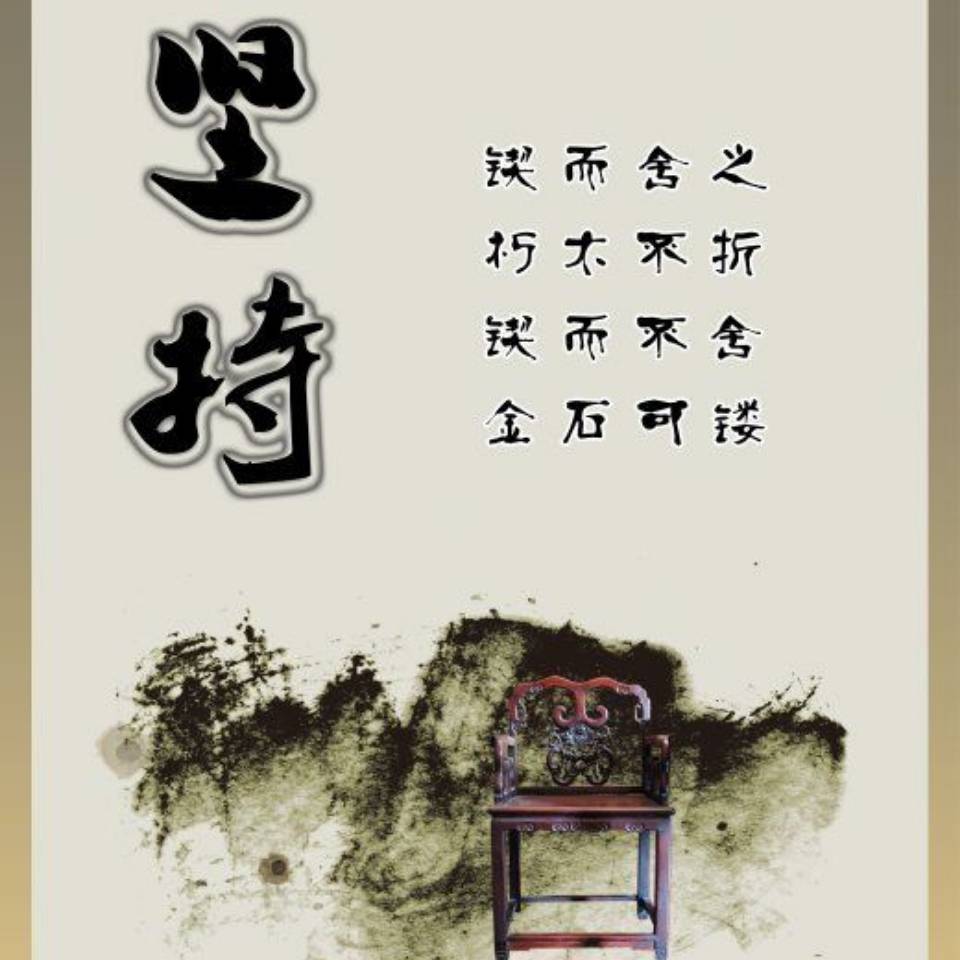 坚持
锲而舍之
朽木不折
锲而不舍
金石可镂